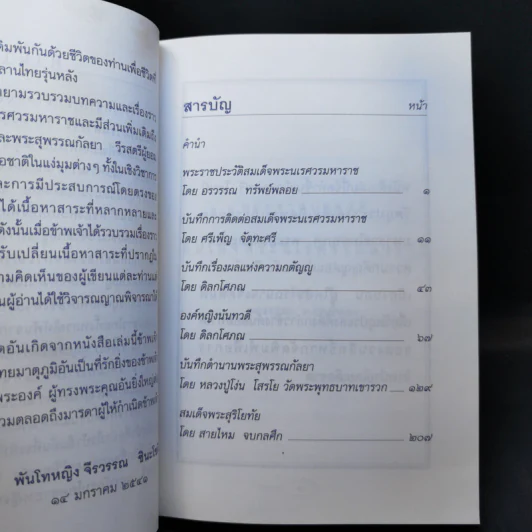 ดิมพันกันด้วยชีวิตของท่านเพื่อชีวิตที่
ลานไทยรุ่นหลัง
ยายามรวบรวมบทความและเรื่องราว
รศวรมหาราชและมีส่วนเพิ่มเติมถึง
ละพระสุพรรณกัลยา วีรสตรีผู้ยอม
อชาติในแง่มุมต่างๆ ทั้งในเชิงวิชาการ
ละการมีประสบการณ์โดยตรงของ
ได้เนื้อหาสาระที่หลากหลายและ
ดังนั้นเมื่อข้าพเจ้าได้รวบรวมเรื่องราว
รับเปลี่ยนเนื้อหาสาระที่ปรากฏใน
ามคิดเห็นของผู้เขียนแต่ละท่านแ
นผู้อ่านได้ใช้วิจารณญาณพิจารณาไ
ดอันเกิดจากหนังสือเล่มนี้ข้าพเจ้
ทยมาตุภูมิอันเป็นที่รักยิ่งของข้าพเจ้
พระองค์ ผู้ทรงพระคุณอันยิ่งใหญ่
วมตลอดถึงมารดาผู้ให้กำเนิดข้าพเ
พันโทหญิง จีรวรรณ
๑๔ มกราคม ๒๕๔๑
สารบัญ หน้า
คำนำ
พระราชประวัติสมเด็จพระนเรศวรมหาราช
โดย อรวรรณ ทรัพย์พลอย ๑
บันทึกการติดต่อสมเด็จพระนเรศวรมหาราช
โดย ศรีเพ็ญ จัตุทะศรี ๑๑
บันทึกเรื่องผลแห่งความกตัญญู
โดย ดิลกโศภณ ๔๓
องค์หญิงนันทวดี
โดย ดิลกโศภณ ๖๗
บันทึกตำนานพระสุพรรณกัลยา
โดย หลวงปู่โง่น โสรโย วัดพระพุทธบาทเขารวก ๑๒๙
สมเด็จพระสุริโยทัย
โดย สายไหม จบกลศึก ๒๐๗